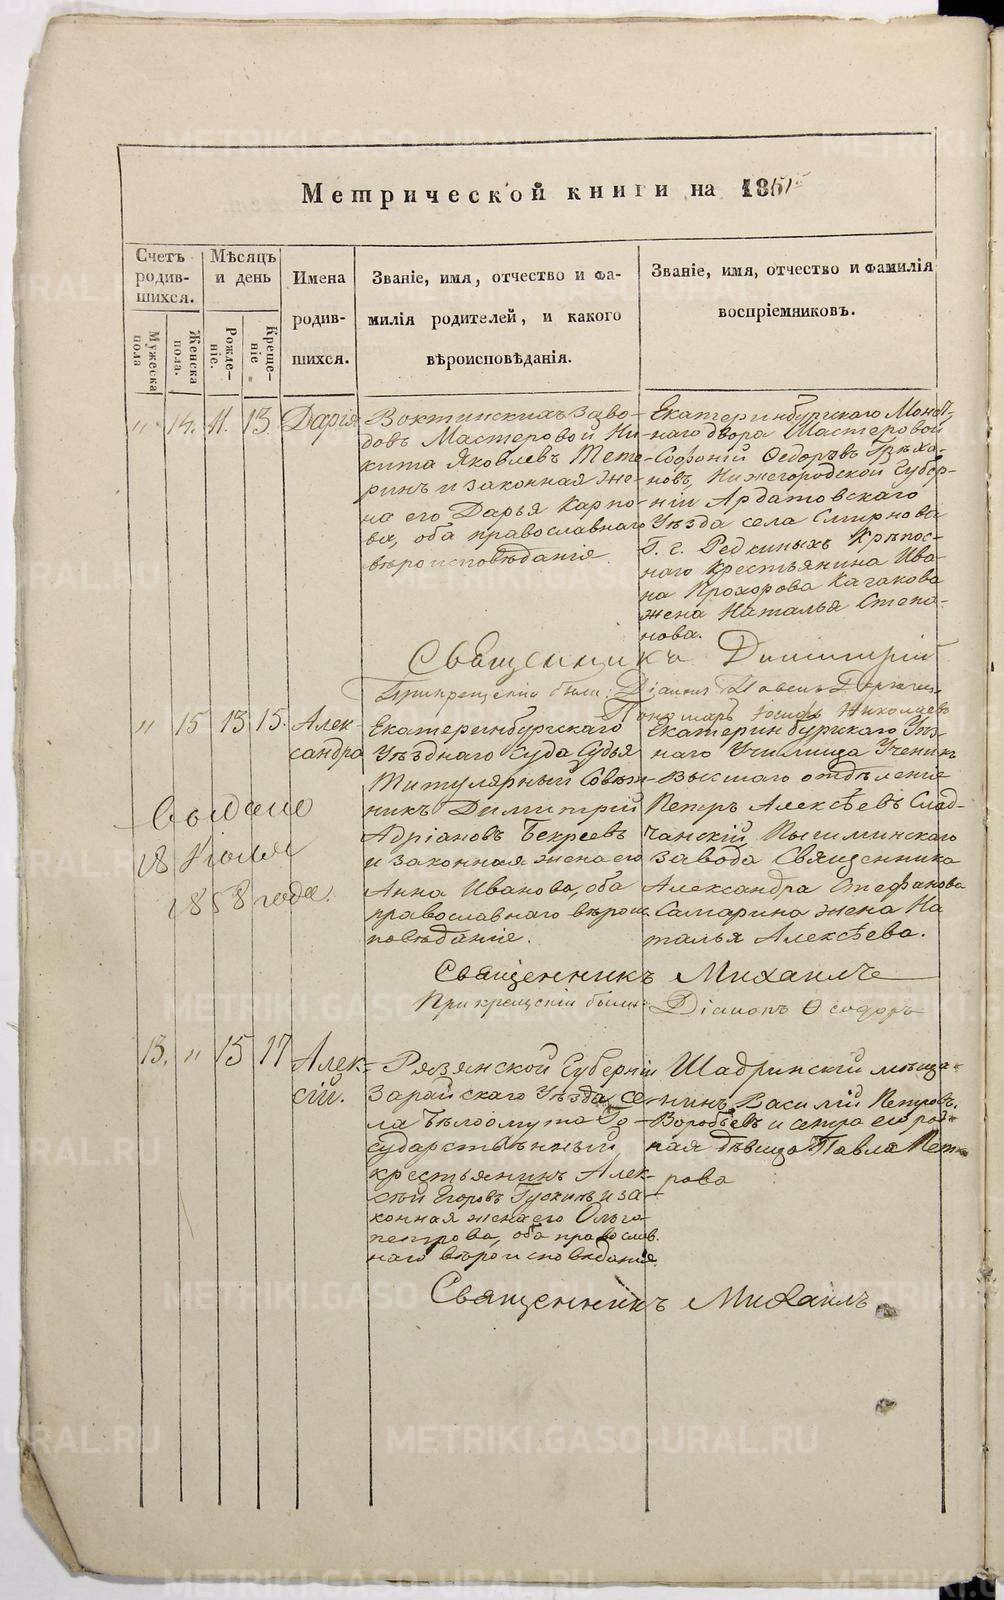 Метрической книги на 1851
Счетъ родив-
шихся.
Мужеска пола
Женска пола.
Мѣсяцъ и день
Рожде-
ніе.
Креще-
ніе
Имена
родив-
шихся.
Званіе, имя, отчество и фа-
милія родителей, и какого
вѣроисповѣданія.
Званіе, имя, отчество и фамилія
воспріемниковъ.
" 14. 11. 13. Дарія
заво-
довъ Мастеровой Ни-
кита Яковлевъ Тете-
ринъ и законная же-
на его Дарья Карпо-
ва, оба православнаго
вѣроисповѣданія
Екатеринбургскаго Монет-
наго двора Мастеровой
Софоній Ѳедоровъ Грѣха-
новъ, Нижегородской Губер-
ніи Ардатовскаго
Уѣзда села Смирнова
Г. г. Редкиныхъ Крѣпос-
наго крестьянина Ива-
на Прохорова Качакова
жена Наталья Степа-
нова.
Священникъ Димитрій
При крещеніи были: Діаконъ Павелъ
Пономарь Николаевъ
" 15 13 15. Алек-
сандра
Екатеринбургскаго
Уѣзднаго Суда Судья
Титулярный Совѣт-
никъ Димитрій
Адріановъ Бекреевъ
и законная жена его
Анна Иванова, оба
православнаго вѣроис-
повѣданіе.
Екатеринбургскаго Уѣз-
наго Училища Ученикъ
Высшаго отдѣленіе
Петръ Алексѣевъ Слад-
чанскій, Пышминскаго
завода Священника
Александра Стефанова
Самарина жена На
талья Алексѣева.
Выдано
18 Июля
1858 года.
Священникъ Михаилъ
При крещеніи были: Діаконъ Ѳеодоръ
13. " 15 17 Алек-
сій.
Рязянской Губерніи
Зарайскаго Уѣзда, се-
ла Бѣлоомута Го-
сударственный
крестьянинъ Алек-
сѣй Егоровъ Гускинъ и за-
конная жена его Ольга
петрова, оба православ.
наго вѣроисповѣданіе.
Шадринскій мѣща-
нинъ Василій Петровъ
Воробьевъ и сетра его род-
ная дѣвица Павла Пет-
рова
Священникъ Михаилъ
METRIKI.GASO-URAL.RU